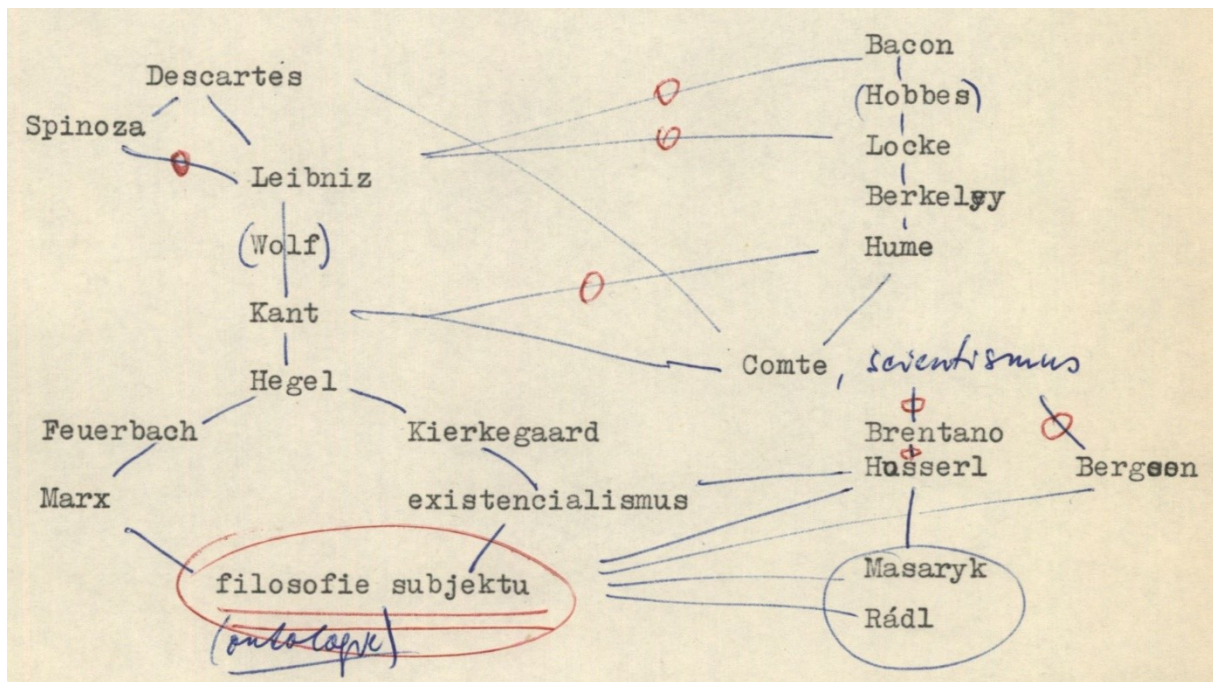 Descartes
Spinoza
Leibniz
(Wolf)
Kant
Hegel
Feuerbach
Kierkegaard
Marx
existencialismus
filosofie subjektu
(ontologie)
Bacon
(Hobbes)
Locke
Berkeley
Hume
Comte, scientismus
Brentano
Husserl
Bergson
Masaryk
Rádl